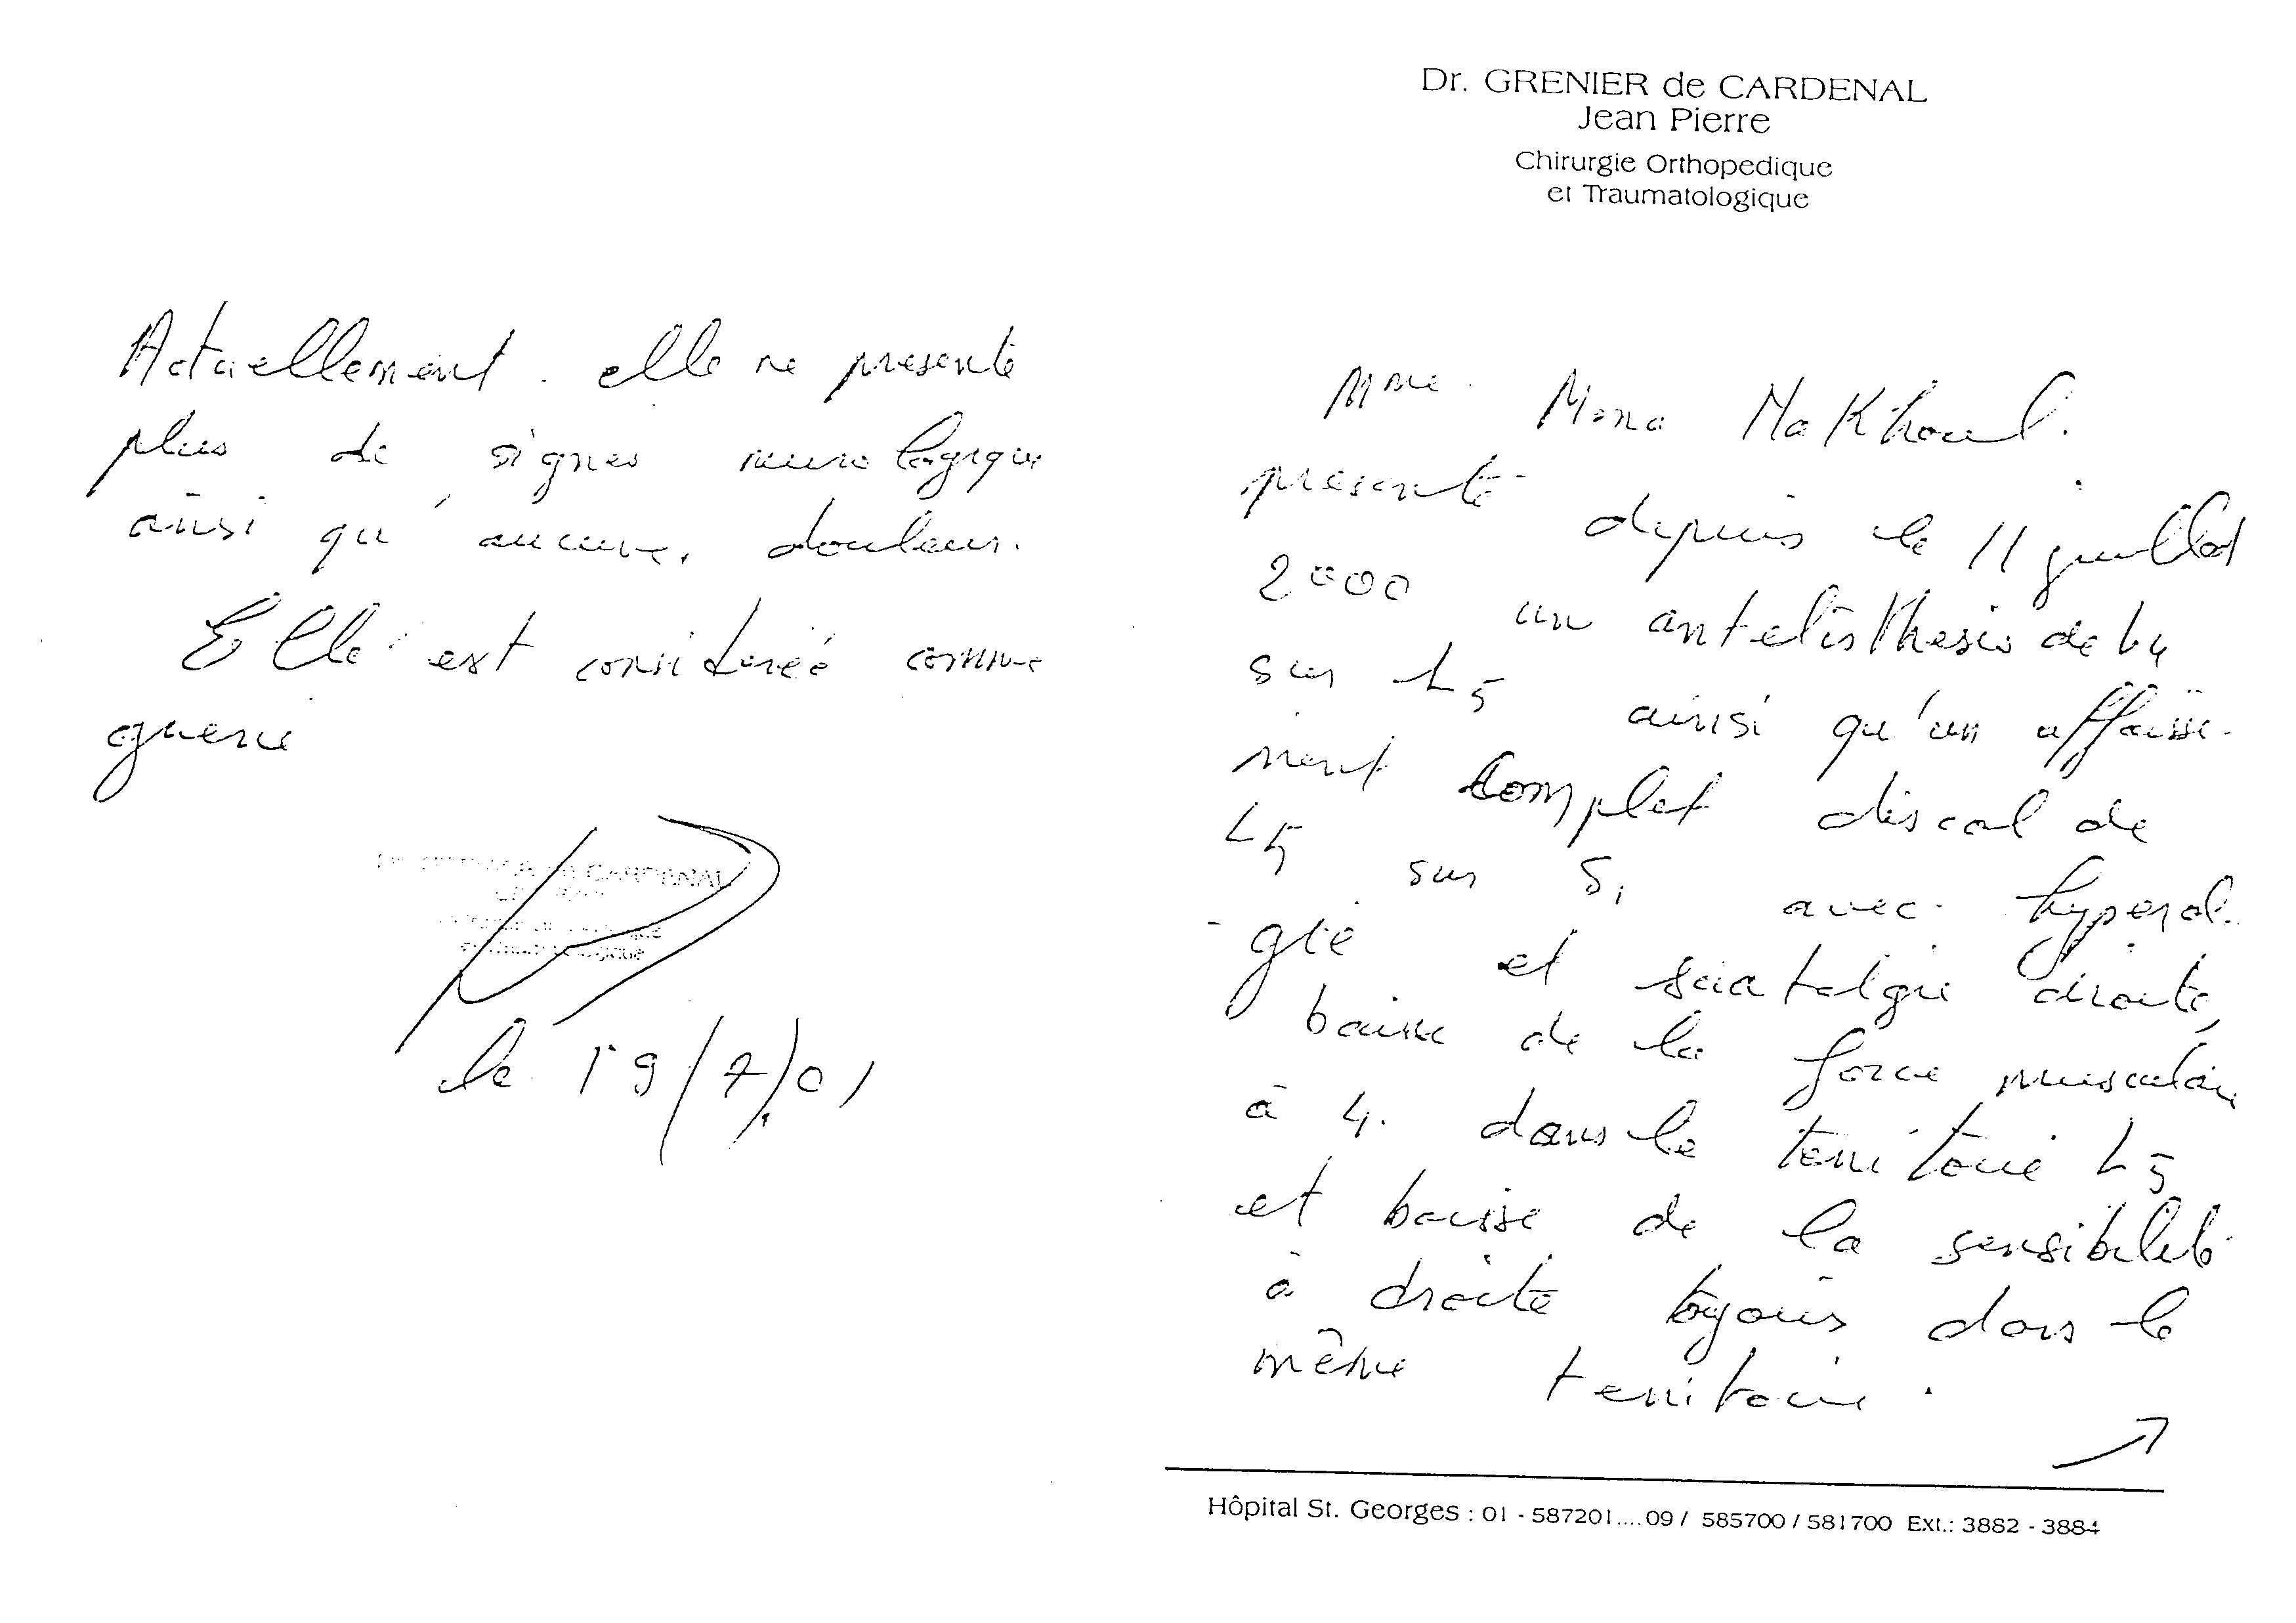 Dr. GRENIER de CARDENAL
Jean Pierre
Chirurgie Orthopedique
et Traumatologique
Mme. Mona Makhoul.
presente depuis le 11 juillet
2000 un antelisthesis de L4
sur L5 ainsi qu'un affaisse-
ment complet discal de
L5 sur S1 avec hyperal-
gie et sciatalgie droite,
baisse de la force musculaire
à 4. dans le territoire L5
et baisse de la sensibilité
à droite toujours dans le
même territoire.
Hôpital St. Georges : 01 - 587201....09 / 585700 / 581700 Ext.: 3882 - 3884
Actuellement. elle ne presente
plus de signes neurologique
ainsi qu'aucune douleur.
Elle est considerée comme
guerie
CARDENAL
le 19/7/01